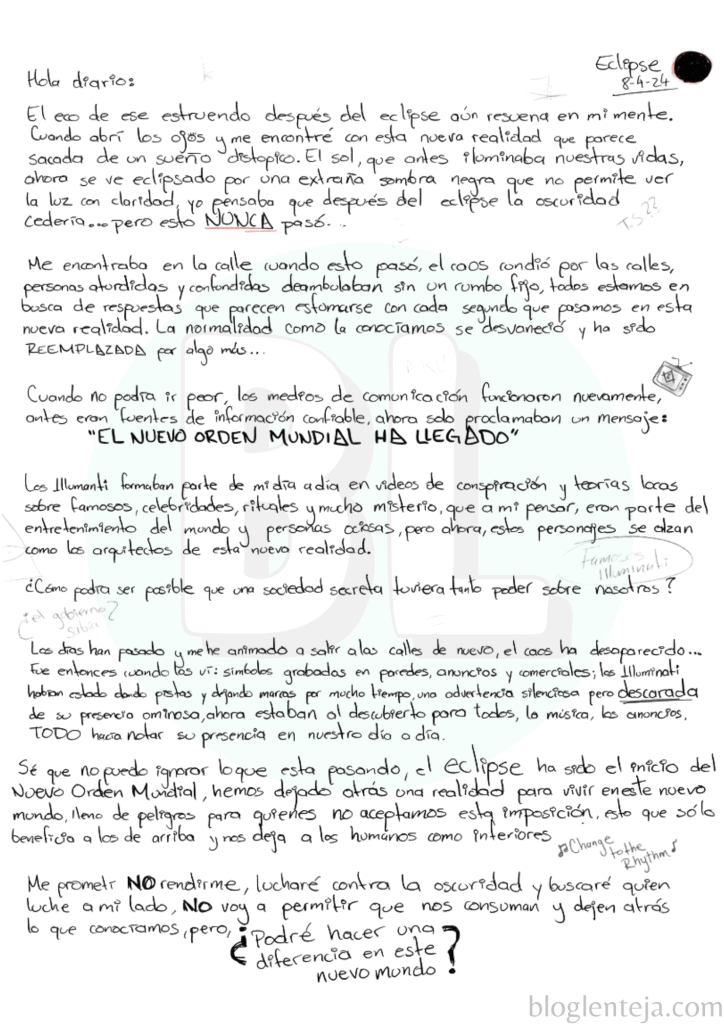 Eclipse
8-4-24
Hola diario:
El eco de ese estruendo después del eclipse aún resuena en mi mente.
Cuando abrí los ojos y me encontré con esta nueva realidad que parece
sacada de un sueño distopico. El sol, que antes iluminaba nuestras vidas,
ahora se ve eclipsado por una extraña sombra negra que no permite ver
la luz con claridad, yo pensaba que después del eclipse la oscuridad
cedería... pero esto NUNCA pasó...
T.S??
Me encontraba en la calle cuando esto pasó, el caos cundió por las calles,
personas aturdidas y confundidas deambulaban sin un rumbo fijo, todos estamos en
busca de respuestas que parecen esfumarse con cada segundo que pasamos en esta
nueva realidad. La normalidad como la conocíamos se desvaneció y ha sido
REEMPLAZADA por algo más...
Cuando no podía ir peor, los medios de comunicación funcionaron nuevamente,
antes eran fuentes de información confiable, ahora solo proclamaban un mensaje:
"EL NUEVO ORDEN MUNDIAL HA LLEGADO"
Los Illumanti formaban parte de mi día a día en videos de conspiración y teorías locas
sobre famosos, celebridades, rituales y mucho misterio, que a mi pensar, eran parte del
entretenimiento del mundo y personas ociosas, pero ahora, estos personajes se alzan
como los arquitectos de esta nueva realidad.
Famosos
Illuminati
¿Cómo podría ser posible que una sociedad secreta tuviera tanto poder sobre nosotros?
¿el gobierno
sabía?
Los días han pasado y me he animado a salir a las calles de nuevo, el caos ha desaparecido...
Fue entonces cuando los vi: simbolos grabados en paredes, anuncios y comerciales; los Illuminati
habían estado dando pistas y dejando marcas por mucho tiempo, una advertencia silenciosa pero descarada
de su presencia ominosa, ahora estaban al descubierto para todos, la música, los anuncios,
TODO hacía notar su presencia en nuestro día a día.
Sé que no puedo ignorar lo que esta pasando, el eclipse ha sido el inicio del
Nuevo Orden Mundial, hemos dejado atrás una realidad para vivir en este nuevo
mundo, lleno de peligros para quienes no aceptamos esta imposición, esto que sólo
beneficia a los de arriba y nos deja a los humanos como inferiores
Change
to the
Rhythm
Me prometí NO rendirme, lucharé contra la oscuridad y buscaré quien
luche a mi lado, NO voy a permitir que nos consuman y dejen atrás
lo que conocíamos, pero, ¿Podré hacer una
diferencia en este
nuevo mundo?
BL
bloglenteja.com